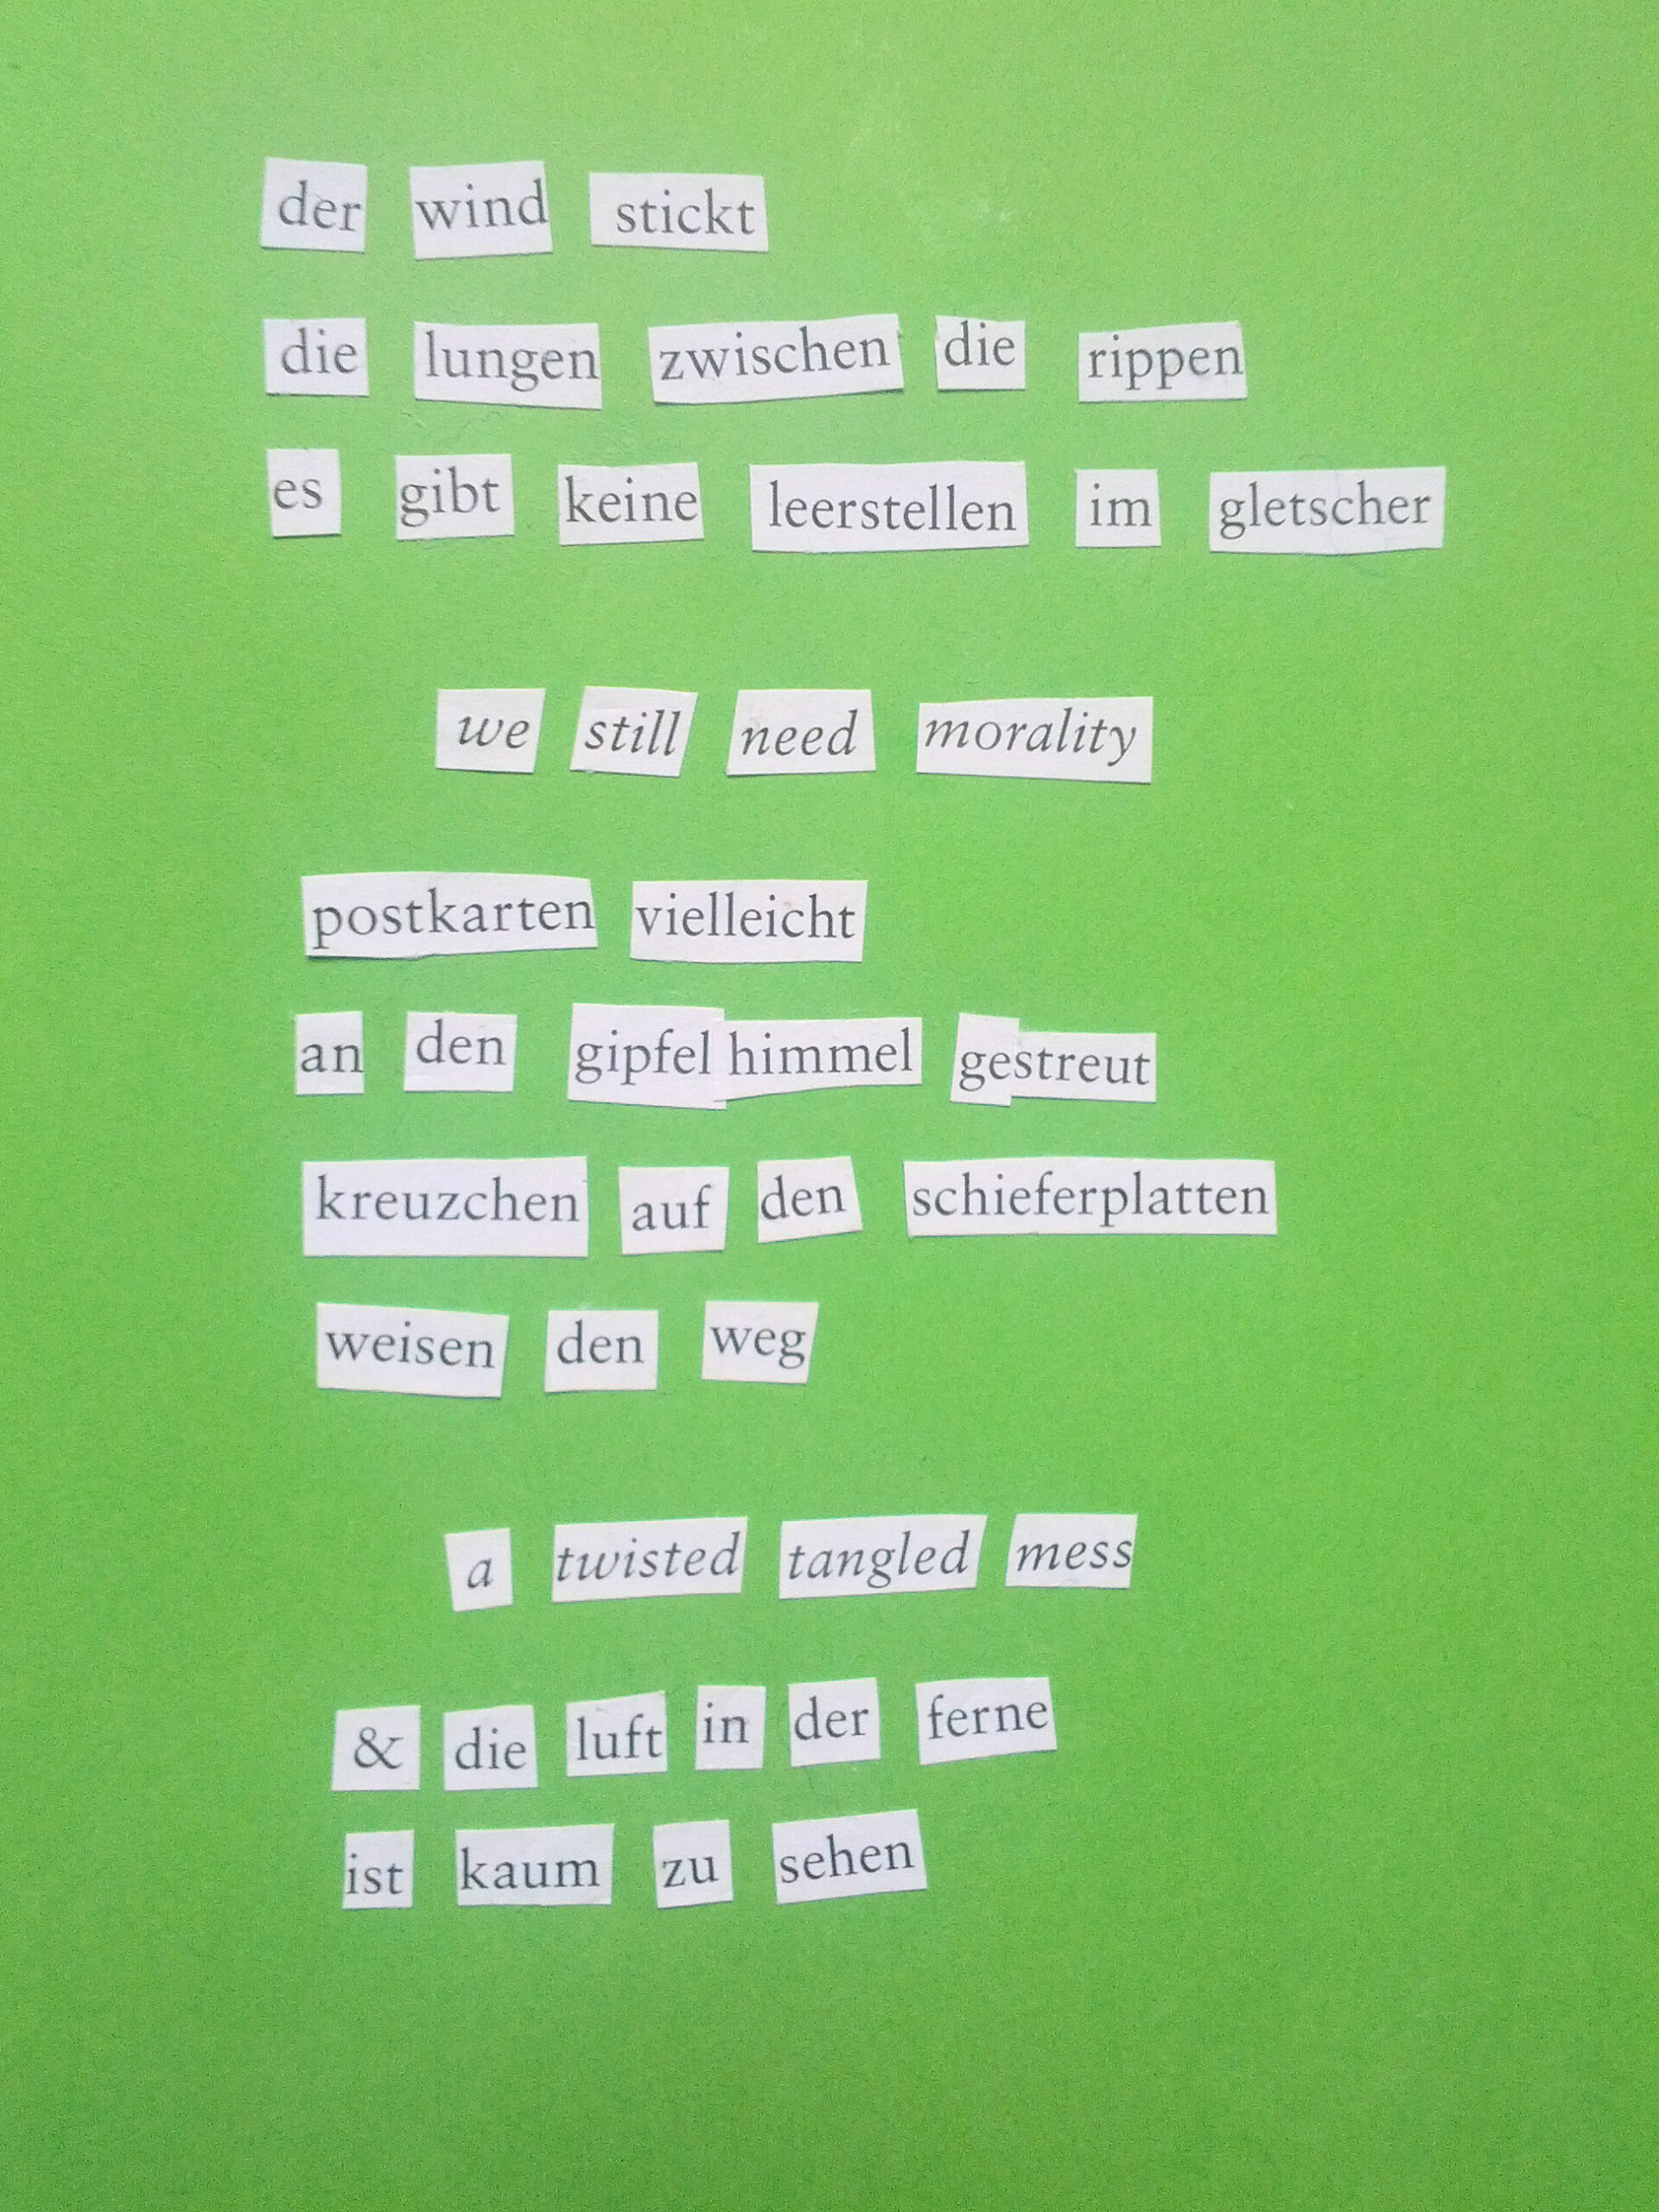 der wind stickt
die lungen zwischen die rippen
es gibt keine leerstellen im gletscher
we still need morality
postkarten vielleicht
an den gipfelhimmel gestreut
kreuzchen auf den schieferplatten
weisen den weg
a twisted tangled mess
& die luft in der ferne
ist kaum zu sehen